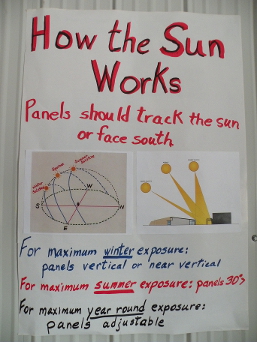 How the Sun
Works
Panels should track the sun
or face south
W
S
N
E
For maximum winter exposure:
panels vertical or near vertical
For maximum summer exposure: panels 30°
For maximum year round exposure:
panels adjustable